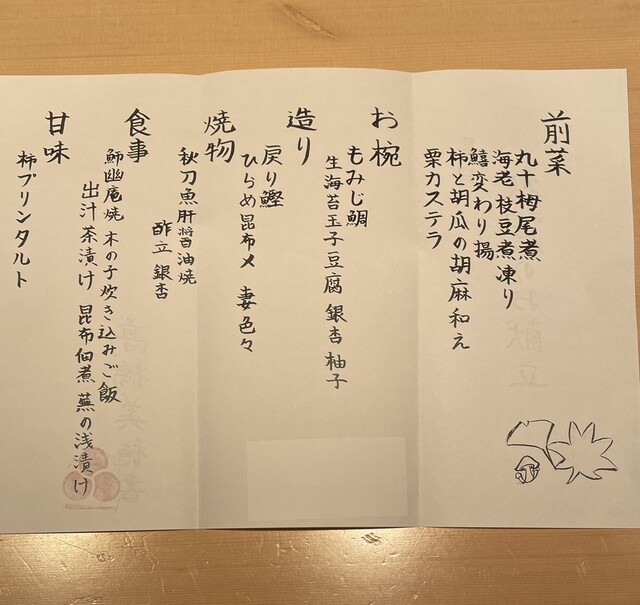 前菜
丸十梔尾煮
海老枝豆煮凍り
鱚変わり揚
柿と胡瓜の胡麻和え
栗カステラ
お椀
もみじ鯛
生海苔玉子豆腐 銀杏 柚子
造り
戻り鰹
ひらめ昆布〆 妻色々
焼物
秋刀魚肝醤油焼
酢立 銀杏
食事
鰤幽庵焼 木の子炊き込みご飯
出汁茶漬け 昆布佃煮 蕪の浅漬け
甘味
柿プリンタルト